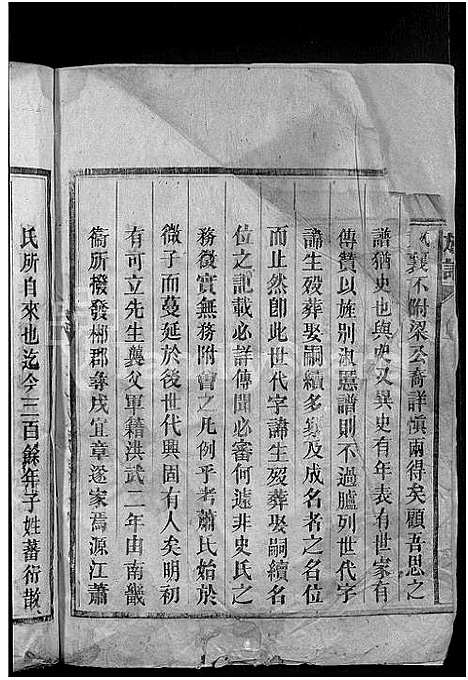 襄不附梁公裔詳慎兩得矣顧吾思之
譜猶史也與史又異史有年表有世家有
傳贊以旌別淑慝譜則不過臚列世代字
諱生歿葬娶嗣續多寡及成名者之名位
而止然卽此世代字諱生歿葬娶嗣續名
位之記載必詳傳聞必審何遠非史氏之
務徵實無務附會之凡例乎考蕭氏始於
微子而蔓延於後世代興固有人矣明初
有可立先生襲父軍籍洪武二年由南畿
衞所撥發郴郡彝戌宜章遂家焉源江蕭
氏所自來也迄今三百餘年子姓蕃衍散